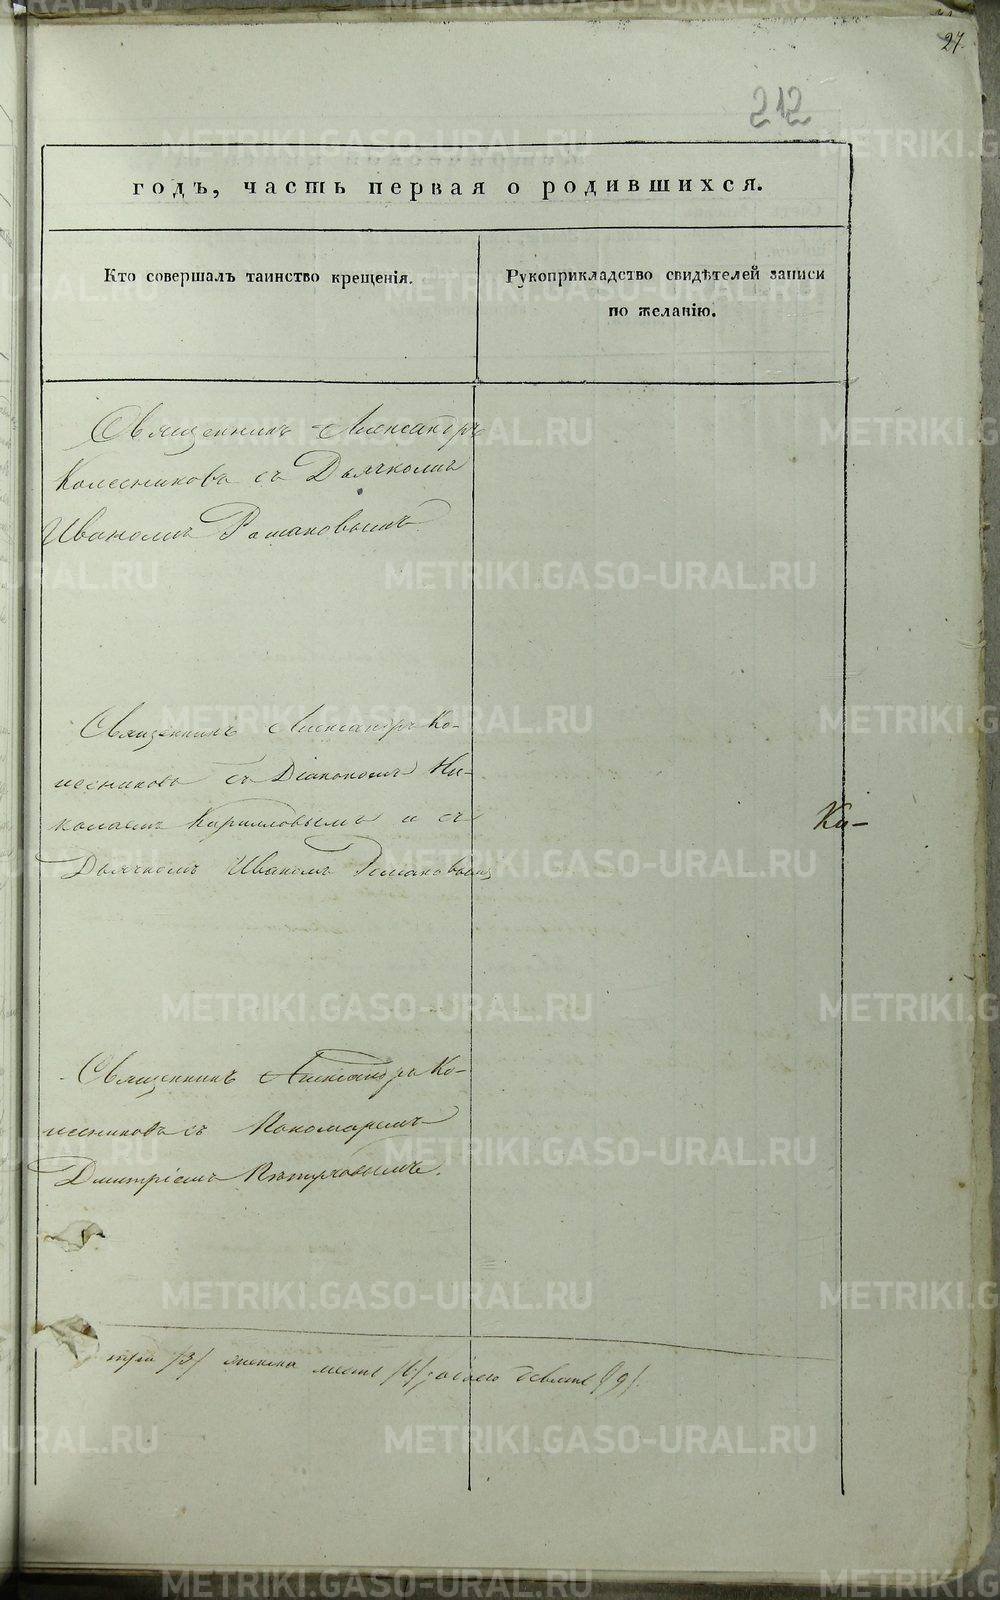 27.
212
годъ, часть первая о родившихся.
Кто совершалъ таинство крещенія.
Рукоприкладство свидѣтелей записи
по желанію.
Священникъ Александръ
Колесниковъ съ Дьячкомъ
Иваномъ Романовымъ
Священникъ Александръ Ко-
лесниковъ съ Діакономъ Ни-
колаемъ Кирилловымъ и съ
Дьячкомъ Иваномъ Романовымъ
Ка-
Священникъ Александръ Ко-
лесниковъ съ Пономаремъ
Дмитріемъ Пѣтуховымъ.
три /3/ женска шесть /6/, обоего девять /9/.
METRIKI.GASO-URAL.RU